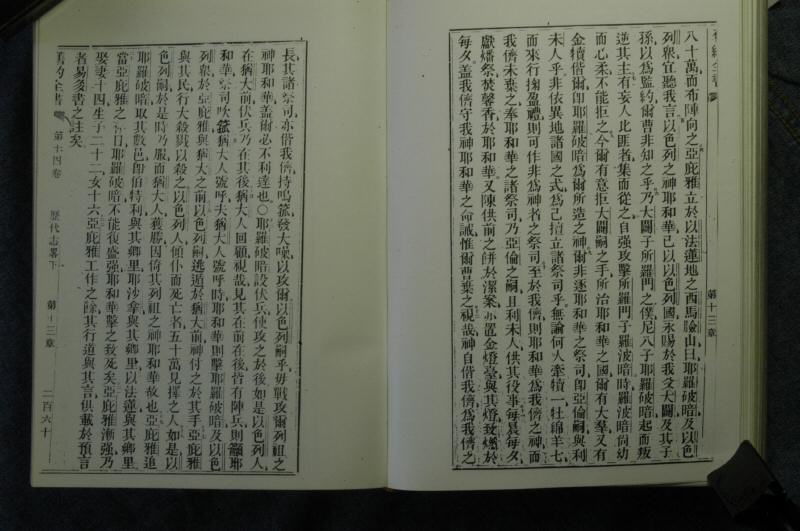 舊約全書
第十三章
八十萬而布陣向之亞庇雅立於以法蓮地之西馬險山曰耶羅破暗及以色
列眾宜聽我言以色列之神耶和華已以以色列國永賜於我父大闢及其子
孫以為監約爾曹非知之乎乃大闢子所羅門之僕尼八子耶羅破暗起而叛
逆其主有妄人比匪者集而從之自強攻擊所羅門子羅破暗時羅破暗尚幼
而心柔不能拒之今爾有意拒大闢嗣之手所治耶和華之國爾有大羣又有
金犢偕爾即耶羅破暗為爾所造之神爾非逐耶和華之祭司即亞倫嗣與利
未人乎非依異地諸國之式為己擅立諸祭司乎無論何人牽犢一牡綿羊七
而來行掬盈禮則可作非為神者之祭司至於我儕則耶和華為我儕之神而
我儕未棄之奉耶和華之諸祭司乃亞倫之嗣且利未人供其役事每晨每夕
獻燔祭焚馨香於耶和華又陳供前之餅於潔案亦置金燈臺與其燈致爇於
每夕蓋我儕守我神耶和華之命誡惟爾曹棄之視哉神自偕我儕為我儕之
長其諸祭司亦偕我儕持鳴號發大噪以攻爾以色列嗣乎毋戰攻爾列祖之
神耶和華蓋爾必不利達也○耶羅破暗設伏兵使攻之於後如是以色列人
在猶大前伏兵乃在其後猶大人回顧視哉見其在前在後皆有陣兵則籲耶
和華祭司吹號猶大人號呼夫猶大人號呼時耶和華則擊耶羅破暗及以色
列眾於亞庇雅與猶大之前以色列嗣逃遁於猶大前神付之於其手亞庇雅
與其民行大殺戮以殺之以色列人傾仆而死亡者五十萬見擇之人如是以
色列嗣於是時乃服而猶大人獲勝因倚其列祖之神耶和華故也亞庇雅追
耶羅破暗取其數邑即伯特利與其鄉里耶沙拿與其鄉里以法蓮與其鄉里
當亞庇雅之日耶羅破暗不能復盛強耶和華擊之致死矣亞庇雅漸強乃
娶妻十四生子二十二女十六亞庇雅工作之餘其行道與其言俱載於預言
者易多書之註矣
舊約全書
第十四卷
歷代志畧下
第十三章
二百六十